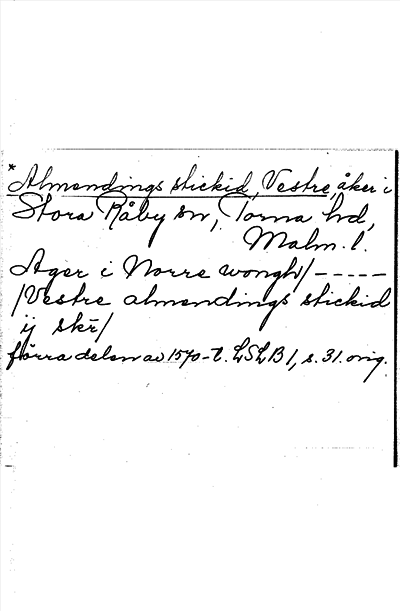 * Almendings stickid, Vestre, åker i
Stora Råby sn, Torna hd,
Malm. l.
Ager i Norre wongh/-----
/Vestre almendings stickid
ij skr/
förra delen av 1570-t. LSLB1, s. 31. orig.